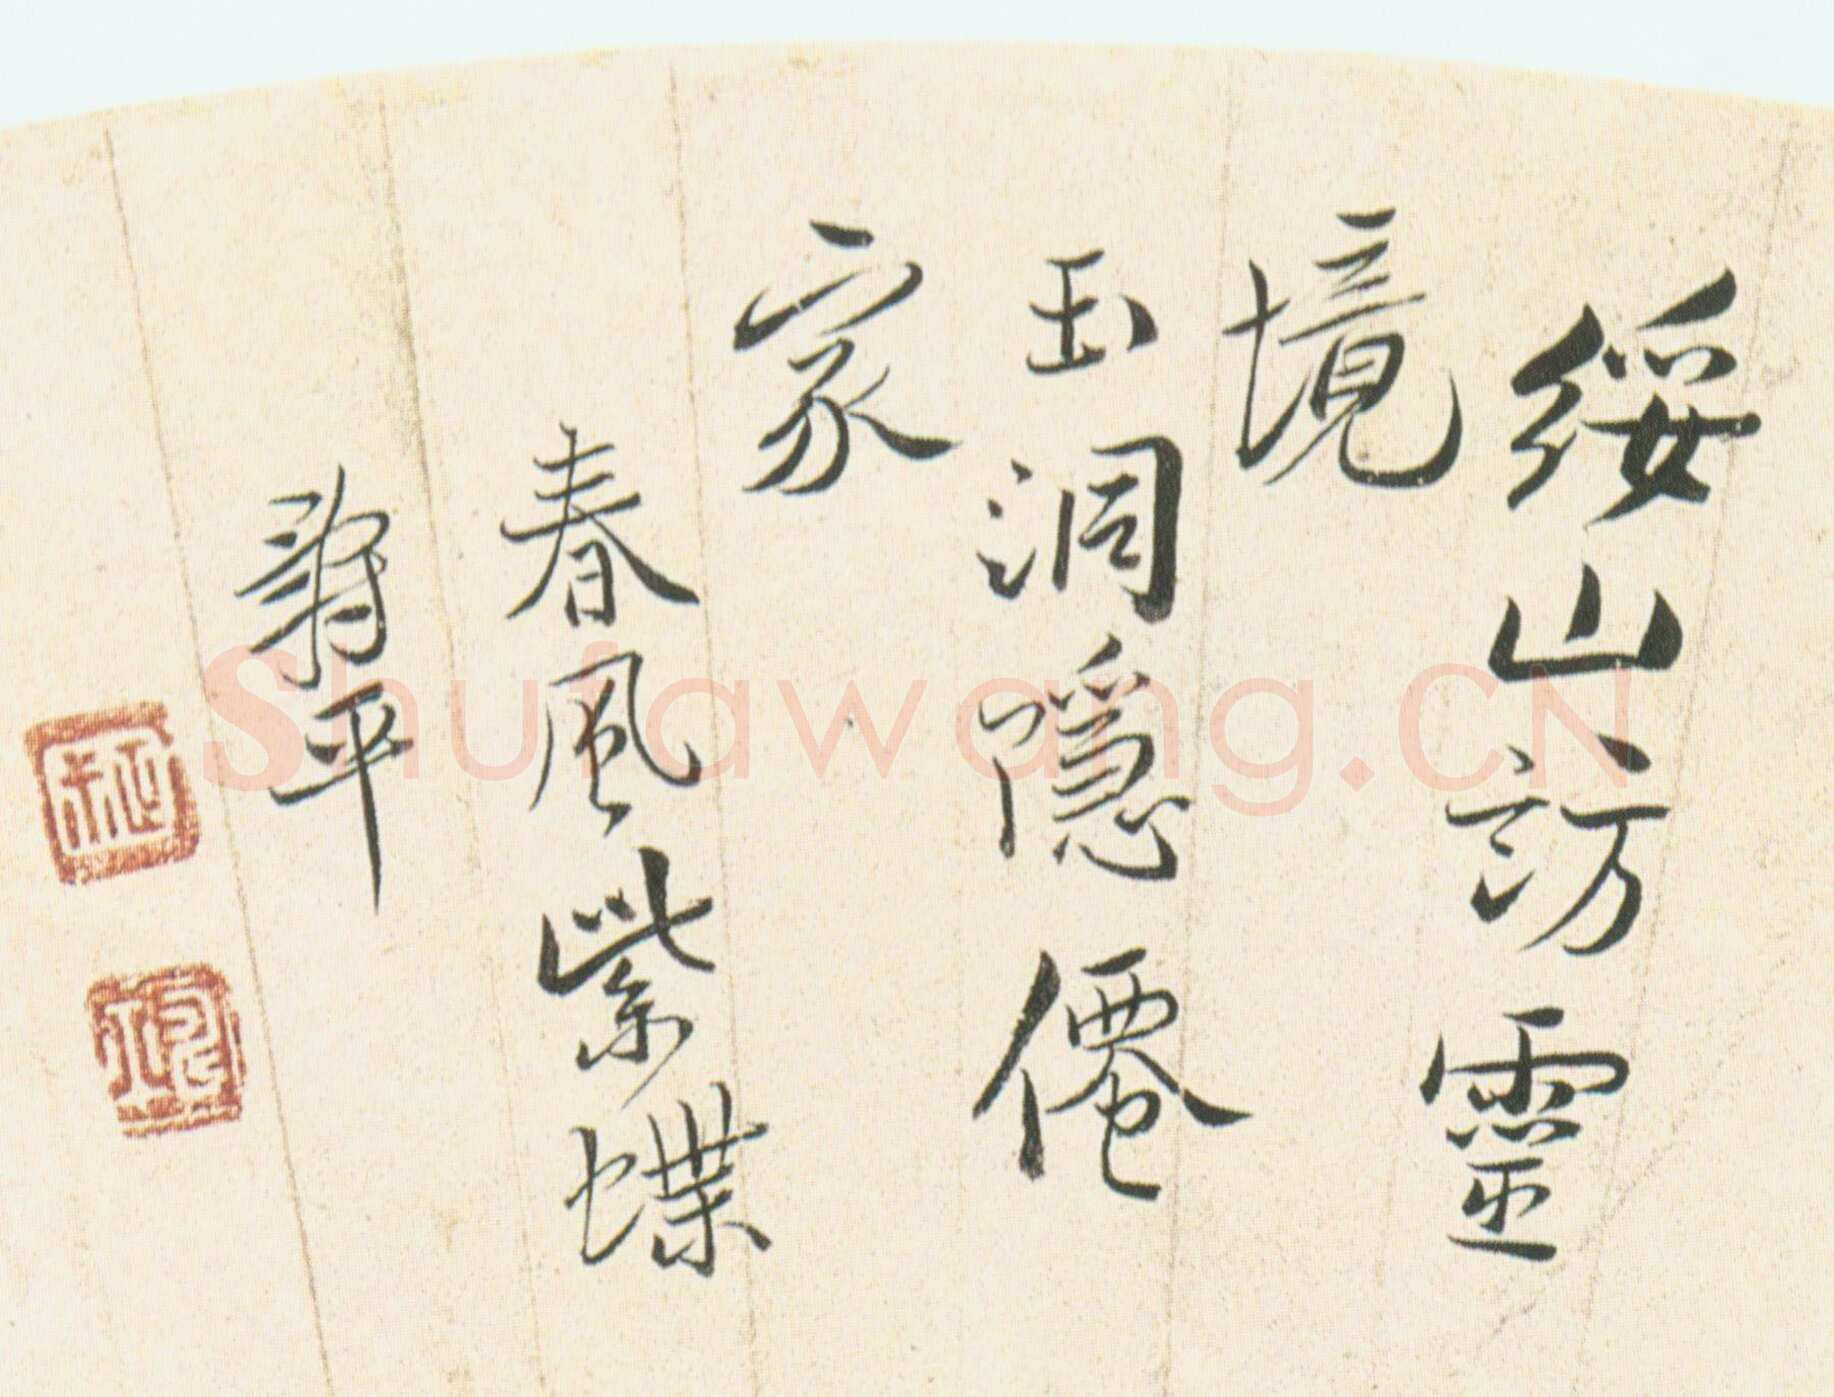 綏山訪靈
境
玉洞隱僊
家
春風紫蝶
平
Shufawang.CN